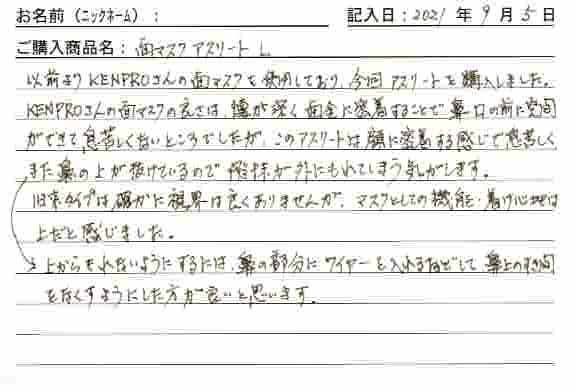 お名前（ニックネーム）：
記入日：2021 年 9 月 5 日
ご購入商品名：面マスク アスリート L
以前より KENPROさんの面マスクを使用しており、今回アスリートを購入しました。
KENPROさんの面マスクの良さは、懐が深く面金に密着することで鼻・口の前に空間
ができて息苦しくないところでしたが、このアスリートは顔に密着する感じで息苦しく
また鼻の上が抜けているので飛沫が外にもれてしまう気がします。
旧来タイプは確かに視界は良くありませんが、マスクとしての機能・着け心地は
上だと感じました。
上からもれないようにするには、鼻の部分にワイヤーを入れるなどして鼻上のすき間
をなくすようにした方が良いと思います。